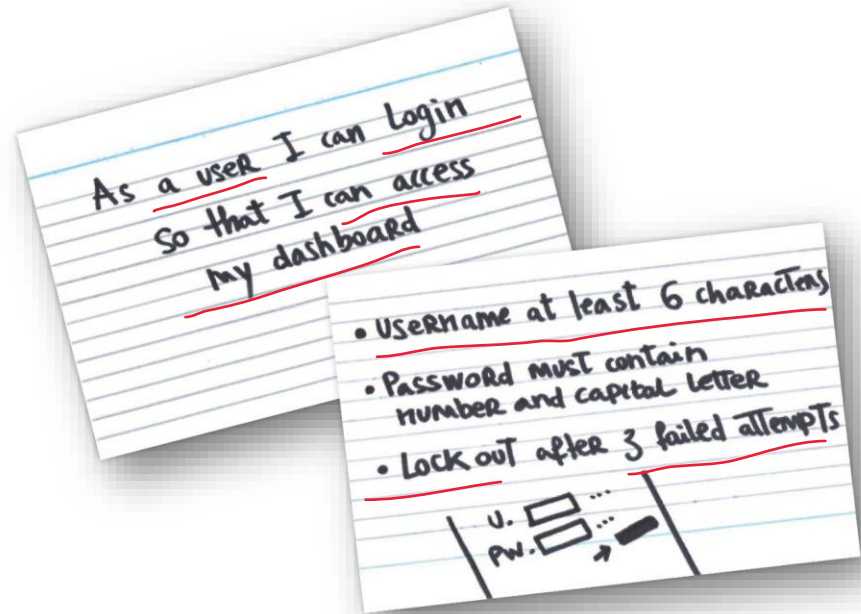 As a user I can login
so that I can access
my dashboard
• Username at least 6 characters
• Password must contain
number and capital letter
• Lock out after 3 failed attempts
U. ...
PW. ...